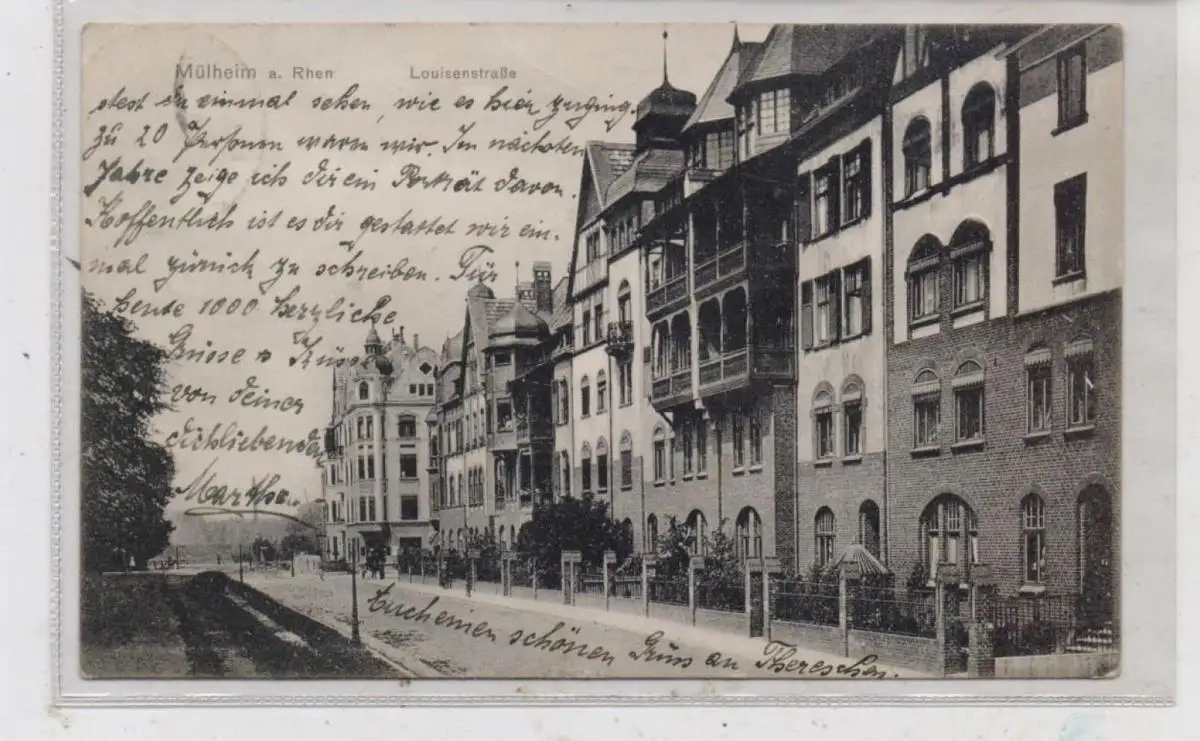 Mülheim a. Rhen Louisenstraße
stest du einmal sehen, wie es hier zuging.
zu 20 Personen waren wir. Im nächsten
Jahre zeige ich dir ein Porträt davon.
Hoffentlich ist es dir gestattet wir ein-
mal zurück zu schreiben. Für
heute 1000 herzliche
Grüsse u Küsse
von deiner
dichliebenden
Martha.
schönen Grüss an Thereschen.